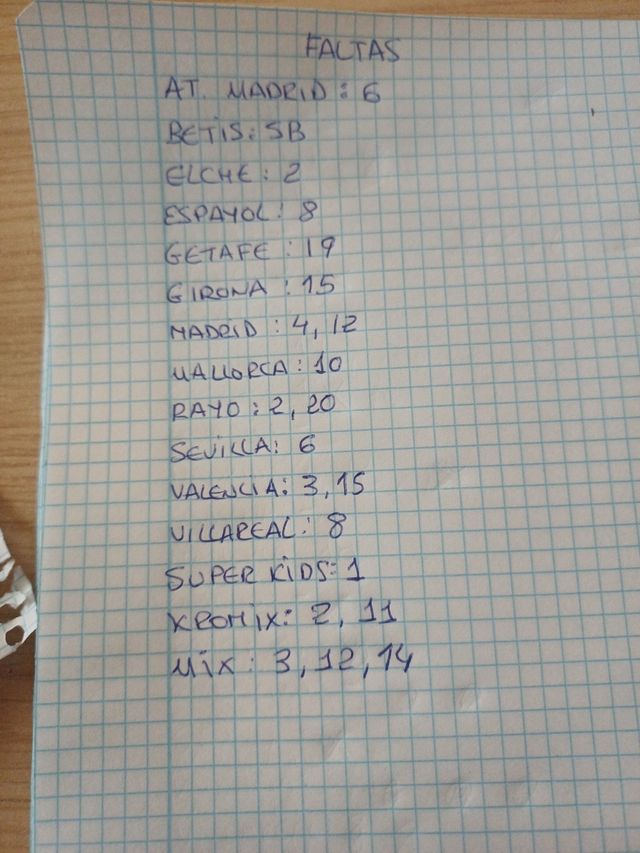 FALTAS
AT. MADRID: 6
BETIS: 5B
ELCHE: 2
ESPAYOL: 8
GETAFE: 19
GIRONA: 15
MADRID: 4, 12
MALLORCA: 10
RAYO: 2, 20
SEVILLA: 6
VALENCIA: 3, 15
VILLAREAL: 8
SUPER KIDS: 1
KROMIX: 2, 11
MIX: 3, 12, 14